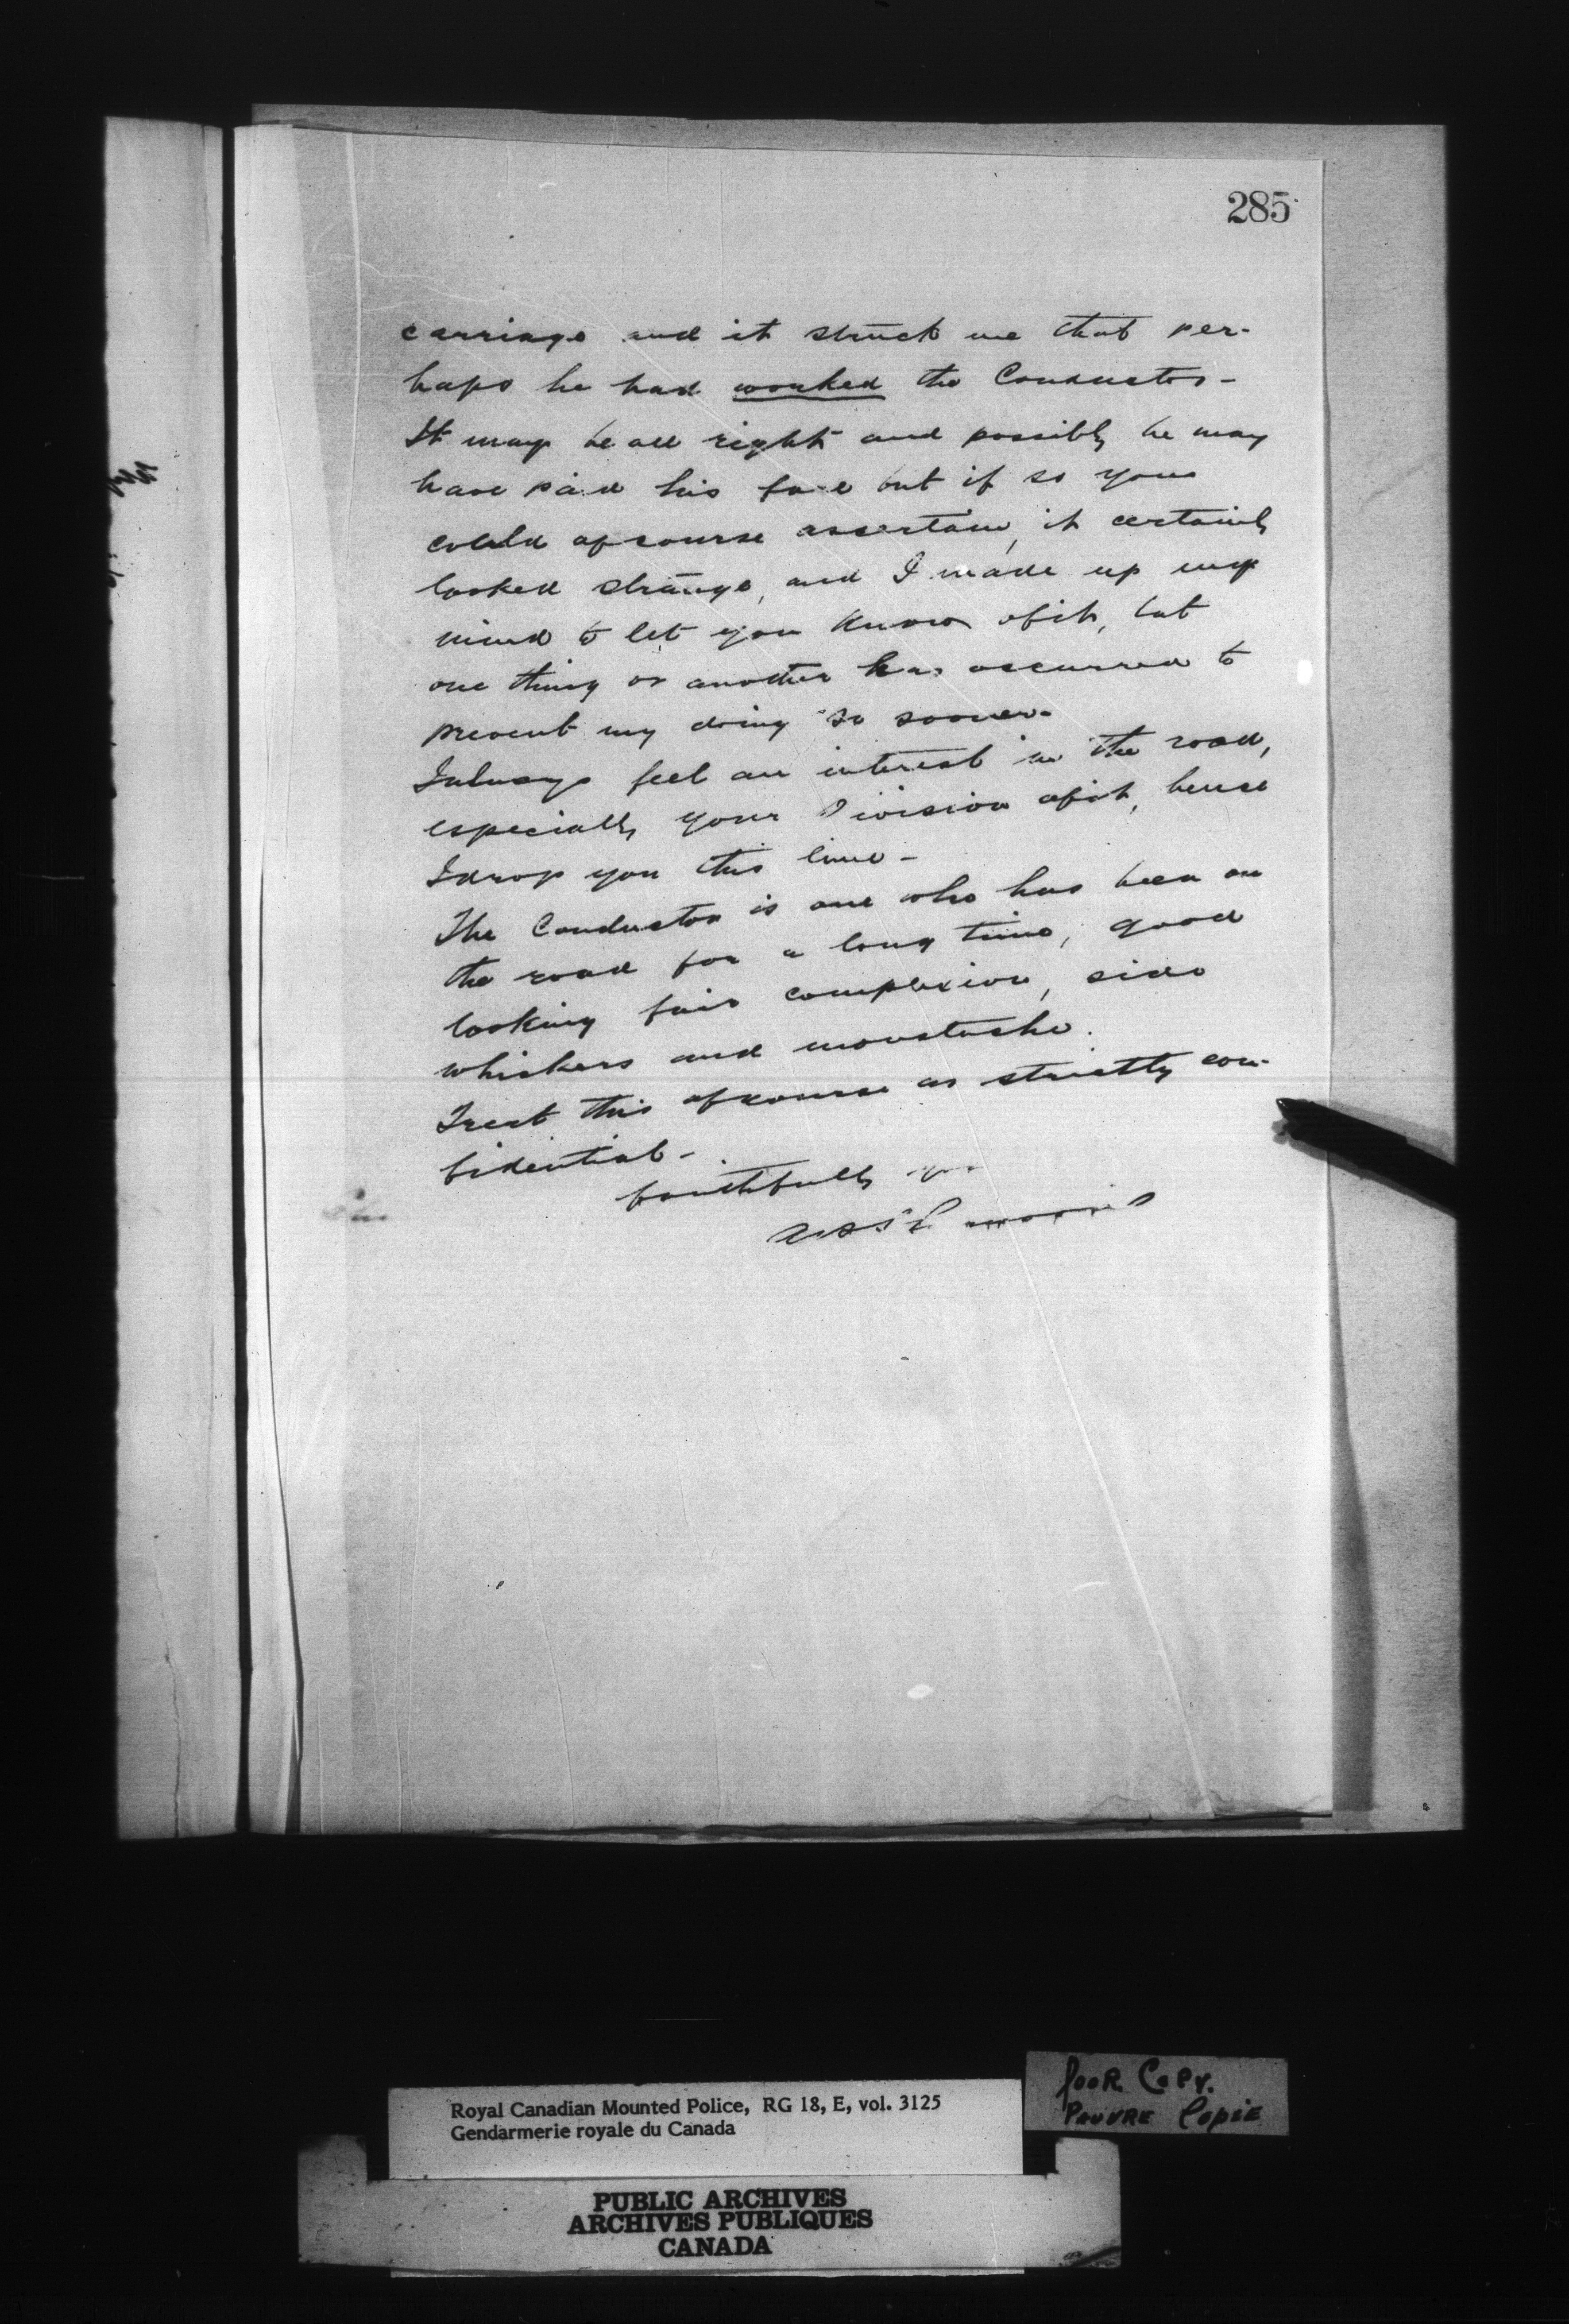 285
carriage and it struck me that per-
haps he had worked the Conductor -
It may be all right and possibly he may
have paid his fare but if so you
could of course ascertain, it certainly
looked strange, and I made up my
mind to let you know of it, but
one thing or another has occurred to
prevent my doing so sooner.
I always feel an interest in the road,
especially your Division of it, hence
I drop you this line -
The Conductor is one who has been on
the road for a long time, good
looking fair complexion, side
whiskers and moustache.
Treat this of course as strictly con-
fidential -
faithfully yrs
Royal Canadian Mounted Police, RG 18, E, vol. 3125
Gendarmerie royale du Canada
Poor Copy.
Pauvre Copie
PUBLIC ARCHIVES
ARCHIVES PUBLIQUES
CANADA